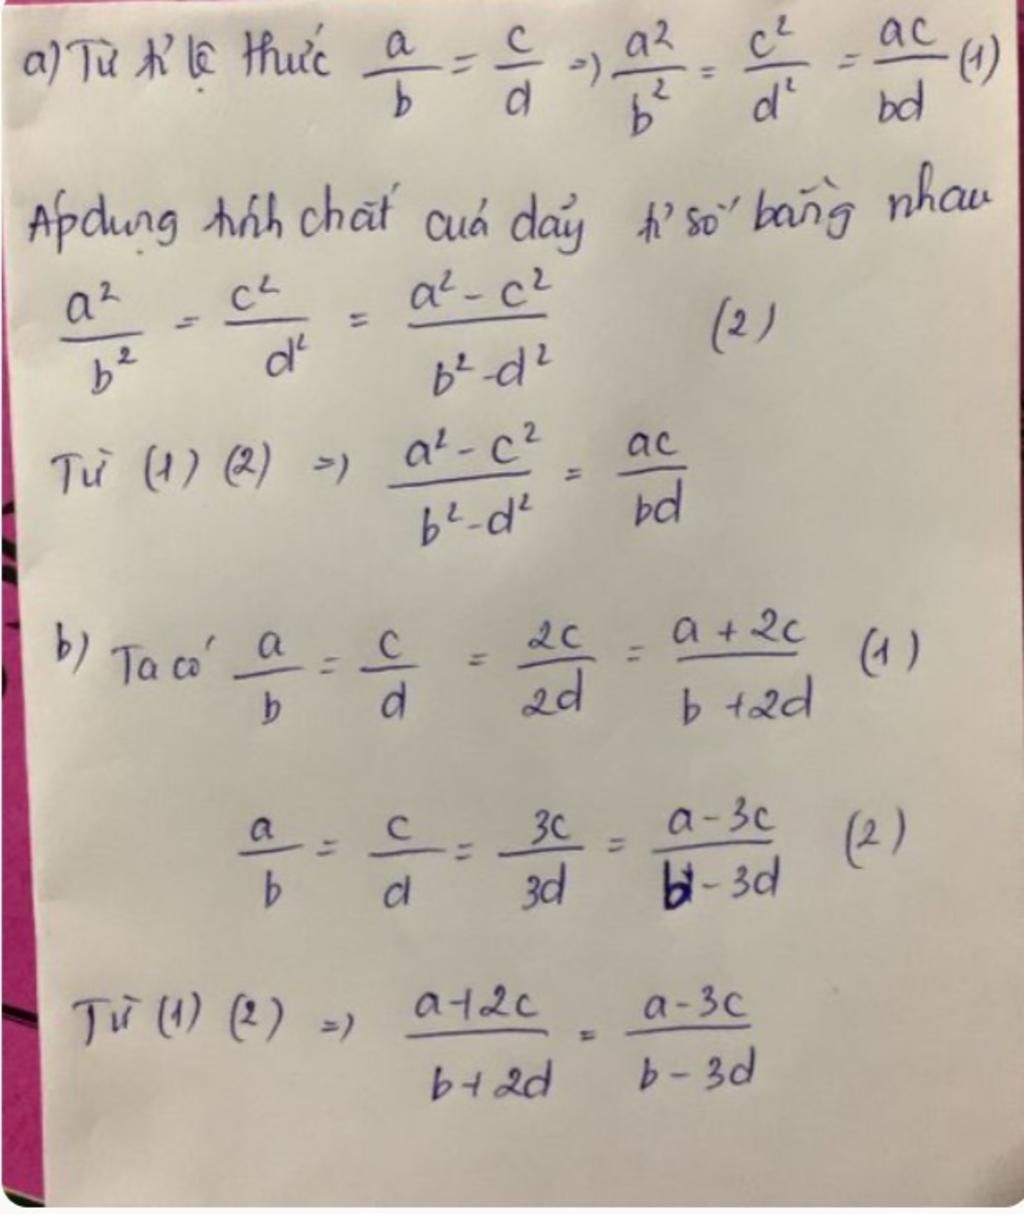 a) Từ tỉ lệ thức a/b = c/d => a²/b² = c²/d² = ac/bd (1)
Áp dụng tính chất cuả dảy tỉ số bằng nhau
a²/b² = c²/d² = a² - c²/b² - d² (2)
Từ (1) (2) => a² - c²/b² - d² = ac/bd
b) Ta có a/b = c/d = 2c/2d = a + 2c/b + 2d (1)
a/b = c/d = 3c/3d = a - 3c/b - 3d (2)
Từ (1) (2) => a + 2c/b + 2d = a - 3c/b - 3d